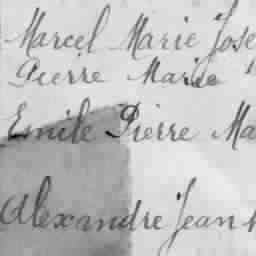 Marcel Marie Jose
Pierre Marie
Emile Pierre Ma
Alexandre Jean